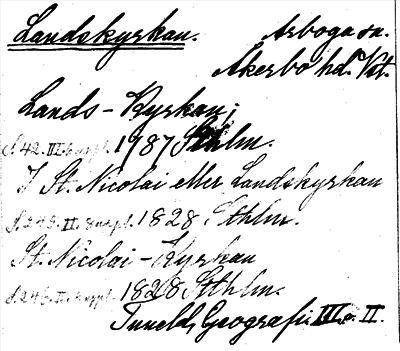 Landskyrkan. Arboga sn.
Åkerbo hd. Vst.
Lands-Kyrkan;
S. 42. III. uppl. 1787 Sthlm.
I St. Nicolai eller Landskyrkan
S. 243. II. 8 uppl. 1828 Sthlm.
St. Nicolai-Kyrkan
S. 243. II. 8 uppl. 1828 Sthlm.
Tuneld, Geografi III o. II.